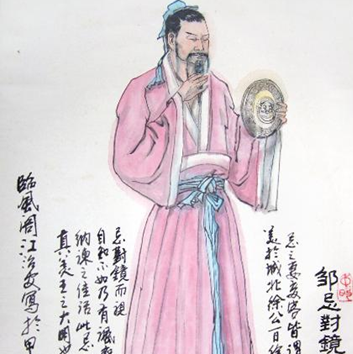 邹忌對鏡
忌之妻妾皆謂
美於城北徐公一日徐
忌對鏡而視
自愧不如乃有諷
納諫之佳話此忌
真美之大用也
臨風閣江寫於甲